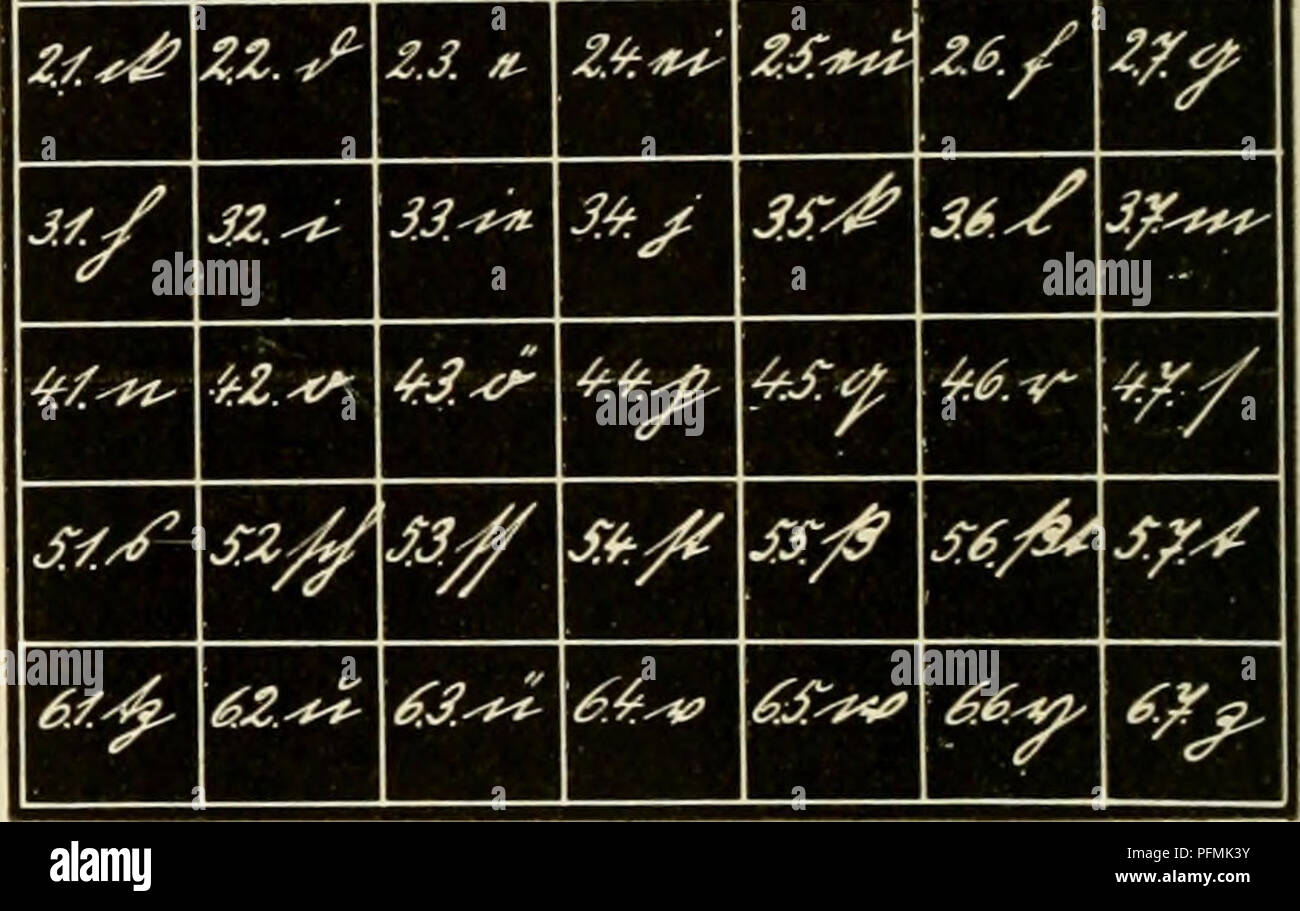 2.1. ck 2.2. d 2.3. e 2.4. ei 2.5. eu 2.6. f 2.7. g
3.1. h 3.2. i 3.3. ie 3.4. j 3.5. k 3.6. l 3.7. m
4.1. n 4.2. o 4.3. ö 4.4. p 4.5. q 4.6. r 4.7. ſ
5.1. s 5.2. ſch 5.3. ſſ 5.4. ſt 5.5. ß 5.6. ßt 5.7. t
6.1. tz 6.2. u 6.3. ü 6.4. v 6.5. w 6.6. y 6.7. z
a alamy stock photo
PFMK3Y
www.alamy.com